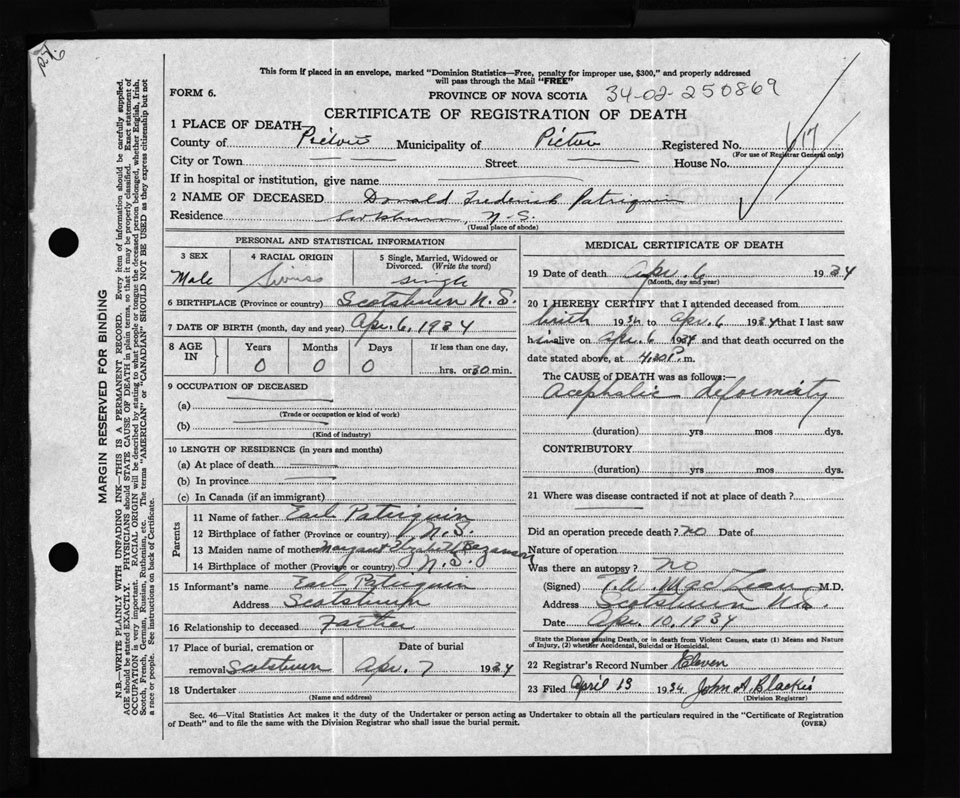 P.76
This form if placed in an envelope, marked "Dominion Statistics—Free, penalty for improper use, $300," and properly addressed
will pass through the Mail "FREE"
FORM 6.
PROVINCE OF NOVA SCOTIA 34-02-250869
CERTIFICATE OF REGISTRATION OF DEATH
1 PLACE OF DEATH—
County of Pictou Municipality of Pictou Registered No. 617
(For use of Registrar General only)
City or Town Street House No.
If in hospital or institution, give name
2 NAME OF DECEASED Donald Frederick Patriquin
Residence Scotsburn, N.S.
(Usual place of abode)
PERSONAL AND STATISTICAL INFORMATION
3 SEX 4 RACIAL ORIGIN 5 Single, Married, Widowed or
Divorced. (Write the word)
Male Swiss single
6 BIRTHPLACE (Province or country) Scotsburn N.S.
7 DATE OF BIRTH (month, day and year) Apr. 6, 1934
8 AGE IN Years Months Days If less than one day,
0 0 0 hrs. or 30 min.
9 OCCUPATION OF DECEASED
(a)
(Trade or occupation or kind of work)
(b)
(Kind of industry)
10 LENGTH OF RESIDENCE (in years and months)
(a) At place of death
(b) In province
(c) In Canada (if an immigrant)
Parents
11 Name of father Earl Paterquin
12 Birthplace of father (Province or country) N.S.
13 Maiden name of mother Margaret Elizabeth
14 Birthplace of mother (Province or country) N.S.
15 Informant's name Earl Patriquin
Address Scotsburn
16 Relationship to deceased Father
17 Place of burial, cremation or Date of burial
removal Scotsburn Apr. 7 1934
18 Undertaker
(Name and address)
MEDICAL CERTIFICATE OF DEATH
19 Date of death Apr. 6 1934
(Month, day and year)
20 I HEREBY CERTIFY that I attended deceased from
birth 1934 to Apr. 6 1934 that I last saw
him alive on Apr. 6 1934 and that death occurred on the
date stated above, at 4.30 P. m.
The CAUSE of DEATH was as follows:—
Acephalic deformity
(duration) yrs mos dys.
CONTRIBUTORY
(duration) yrs mos dys.
21 Where was disease contracted if not at place of death?
Did an operation precede death? no Date of
Nature of operation
Was there an autopsy? no
(Signed) T.W. MacLean M.D.
Address Scotsburn N.S.
Date Apr. 10, 1934
State the Disease causing Death, or in death from Violent Causes, state (1) Means and Nature
of Injury, (2) whether Accidental, Suicidal or Homicidal.
22 Registrar's Record Number Eleven
23 Filed April 13 1934 John A. Blackie
(Division Registrar)
Sec. 46—Vital Statistics Act makes it the duty of the Undertaker or person acting as Undertaker to obtain all the particulars required in the "Certificate of Registration
of Death" and to file the same with the Division Registrar who shall issue the burial permit. (OVER)
MARGIN RESERVED FOR BINDING
N.B.—WRITE PLAINLY WITH UNFADING INK—THIS IS A PERMANENT RECORD. Every item of information should be carefully supplied.
AGE should be stated EXACTLY. PHYSICIANS should STATE CAUSE OF DEATH in plain terms, so that it may be properly classified. Exact statement of
OCCUPATION is very important. RACIAL ORIGIN will be described by stating to what people or tongue the deceased person belonged, whether English, Irish,
Scotch, French, German, Russian, Ruthenian, etc. The terms "AMERICAN" or "CANADIAN" SHOULD NOT BE USED as they express citizenship but not
a race or people. See instructions on back of Certificate.